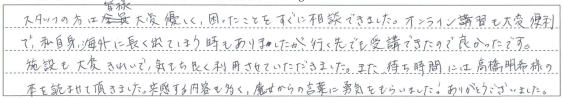 スタッフの方は皆様大変優しく、困ったことをすぐに相談できました。オンライン講習も大変便利
で、私自身、海外に長く出てしまう時もありましたが行く先でも受講できたので良かったです。
施設も大変きれいで、気もち良く利用させていただきました。また待ち時間には高橋明希様の
本を読ませて頂きました。共感する内容も多く、彼女からの言葉に勇気をもらいました!ありがとうございました。